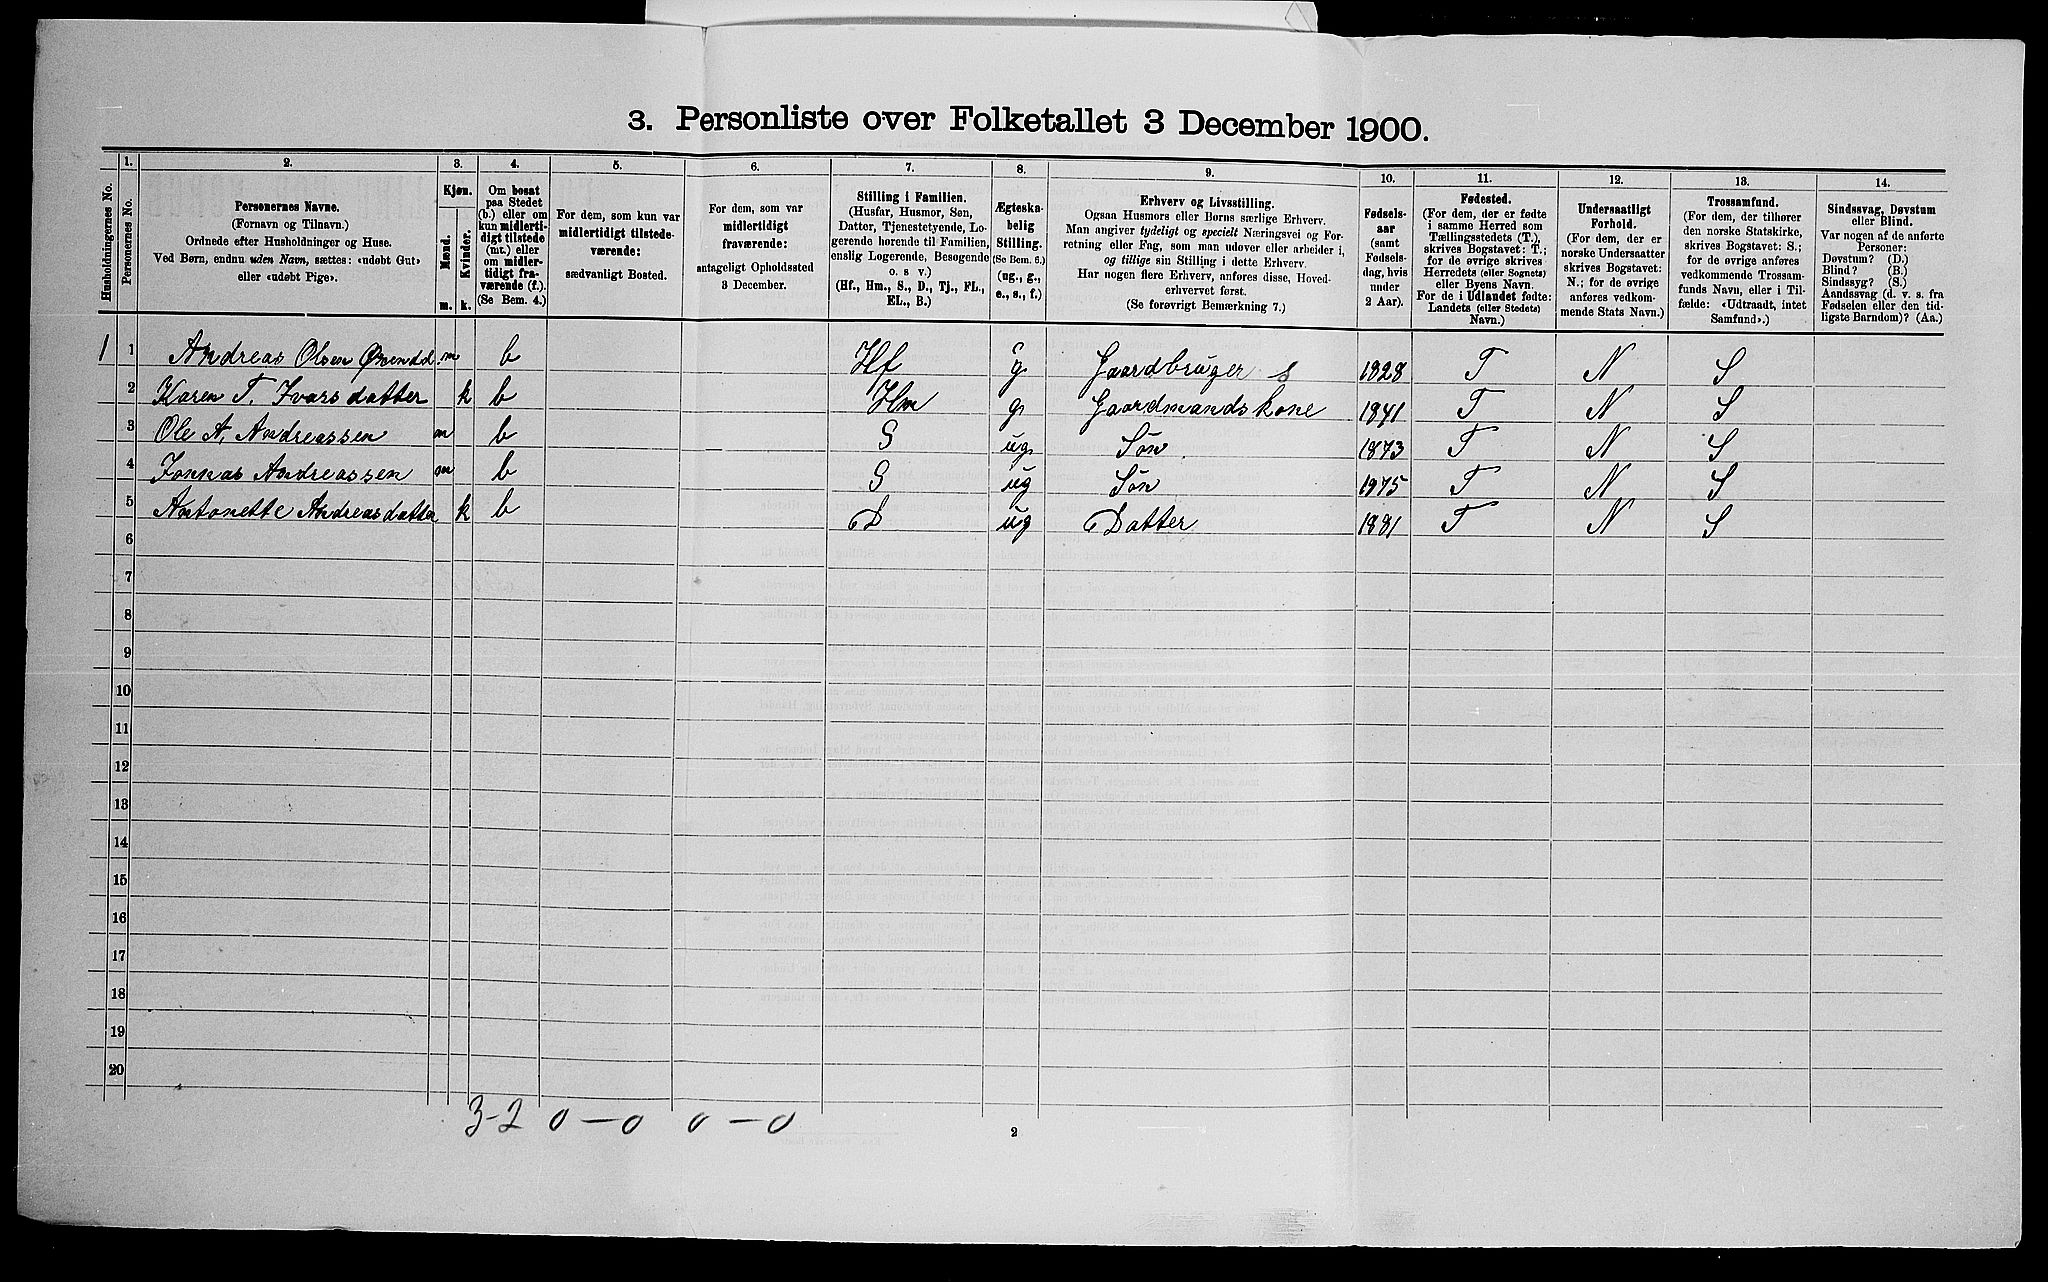 3. Personliste over Folketallet 3 December 1900.
1. 2. 3. 4. 5. 6. 7. 8. 9. 10. 11. 12. 13. 14.
Husholdningernes No.
Personernes No.
Personernes Navne.
(Fornavn og Tilnavn.)
Ordnede efter Husholdninger og Huse.
Ved Børn, endnu uden Navn, sættes: «udøbt Gut»
eller «udøbt Pige».
Kjøn.
Mænd.
Kvinder.
m. k.
Om bosat
paa Stedet
(b.) eller om
kun midlerti-
digt tilstede
(mt.) eller
om midler-
tidigt fra-
værende (f.).
(Se Bem. 4.)
For dem, som kun var
midlertidigt tilstede-
værende:
sædvanligt Bosted.
For dem, som var
midlertidigt
fraværende:
antageligt Opholdssted
3 December.
Stilling i Familien.
(Husfar, Husmor, Søn,
Datter, Tjenestetyende, Lo-
gerende hørende til Familien,
enslig Logerende, Besøgende
o. s v.)
(Hf., Hm., S., D., Tj., FL.,
EL., B.)
Ægteska-
belig
Stilling.
(Se Bem. 6.)
(ug., g.,
e., s., f.)
Erhverv og Livsstilling.
Ogsaa Husmors eller Børns særlige Erhverv.
Man angiver tydeligt og specielt Næringsvei og For-
retning eller Fag, som man udøver eller arbeider i,
og tillige sin Stilling i dette Erhverv.
Har nogen flere Erhverv, anføres disse, Hoved-
erhvervet først.
(Se forøvrigt Bemærkning 7.)
Fødsels-
aar
(samt
Fødsels-
dag, hvis
under
2 Aar).
Fødested.
(For dem, der er fødte
i samme Herred som
Tællingsstedets (T.),
skrives Bogstavet: T.;
for de øvrige skrives
Herredets (eller Sognets)
eller Byens Navn.
For de i Udlandet fødte:
Landets (eller Stedets)
Navn.)
Undersaatligt
Forhold.
(For dem, der er
norske Undersaatter
skrives Bogstavet:
N.; for de øvrige
anføres vedkom-
mende Stats Navn.)
Trossamfund.
(For dem, der tilhører
den norske Statskirke,
skrives Bogstavet: S.;
for de øvrige anføres
vedkommende Trossam-
funds Navn, eller i Til-
fælde: «Udtraadt, intet
Samfund».)
Sindssvag, Døvstum
eller Blind.
Var nogen af de anførte
Personer:
Døvstum? (D.)
Blind? (B.)
Sindssyg? (S.)
Aandssvag (d. v. s. fra
Fødselen eller den tid-
ligste Barndom)? (Aa.)
1 1 Andreas Olsen m b Hf g Gaardbruger s 1828 T N S
2 Karen T. Ivarsdatter k b Hm g Gaardmandskone 1841 T N S
3 Ole A. Andreassen m b S ug Søn 1873 T N S
4 Jonnas Andreassen m b S ug Søn 1875 T N S
5 Antonette Andreasdatter k b D ug Datter 1881 T N S
6
7
8
9
10
11
12
13
14
15
16
17
18
19
20
3-2 0-0 0-0
2